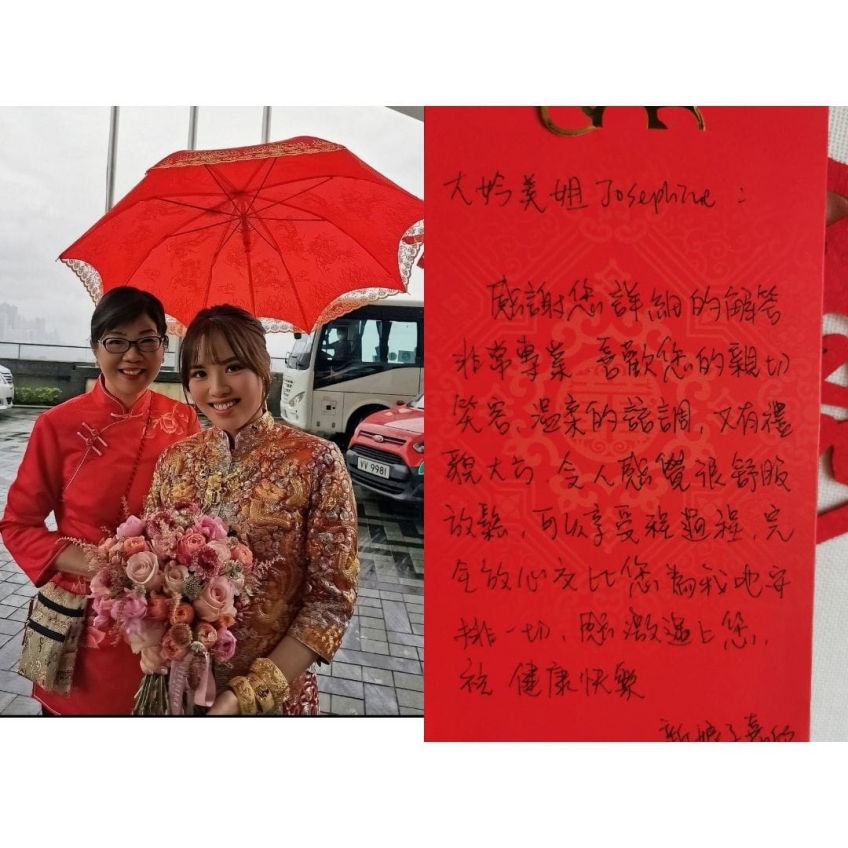 VV 9981
大妗美姐 Josephine :
感謝您詳細的解答
非常專業 喜歡您的親切
笑容、溫柔的語調, 又有禮
貌大方 令人感覺很舒服
放鬆, 可以享受過程, 完
全放心交比您為我地安
排一切, 感激遇上您,
祝 健康快樂
新娘子嘉